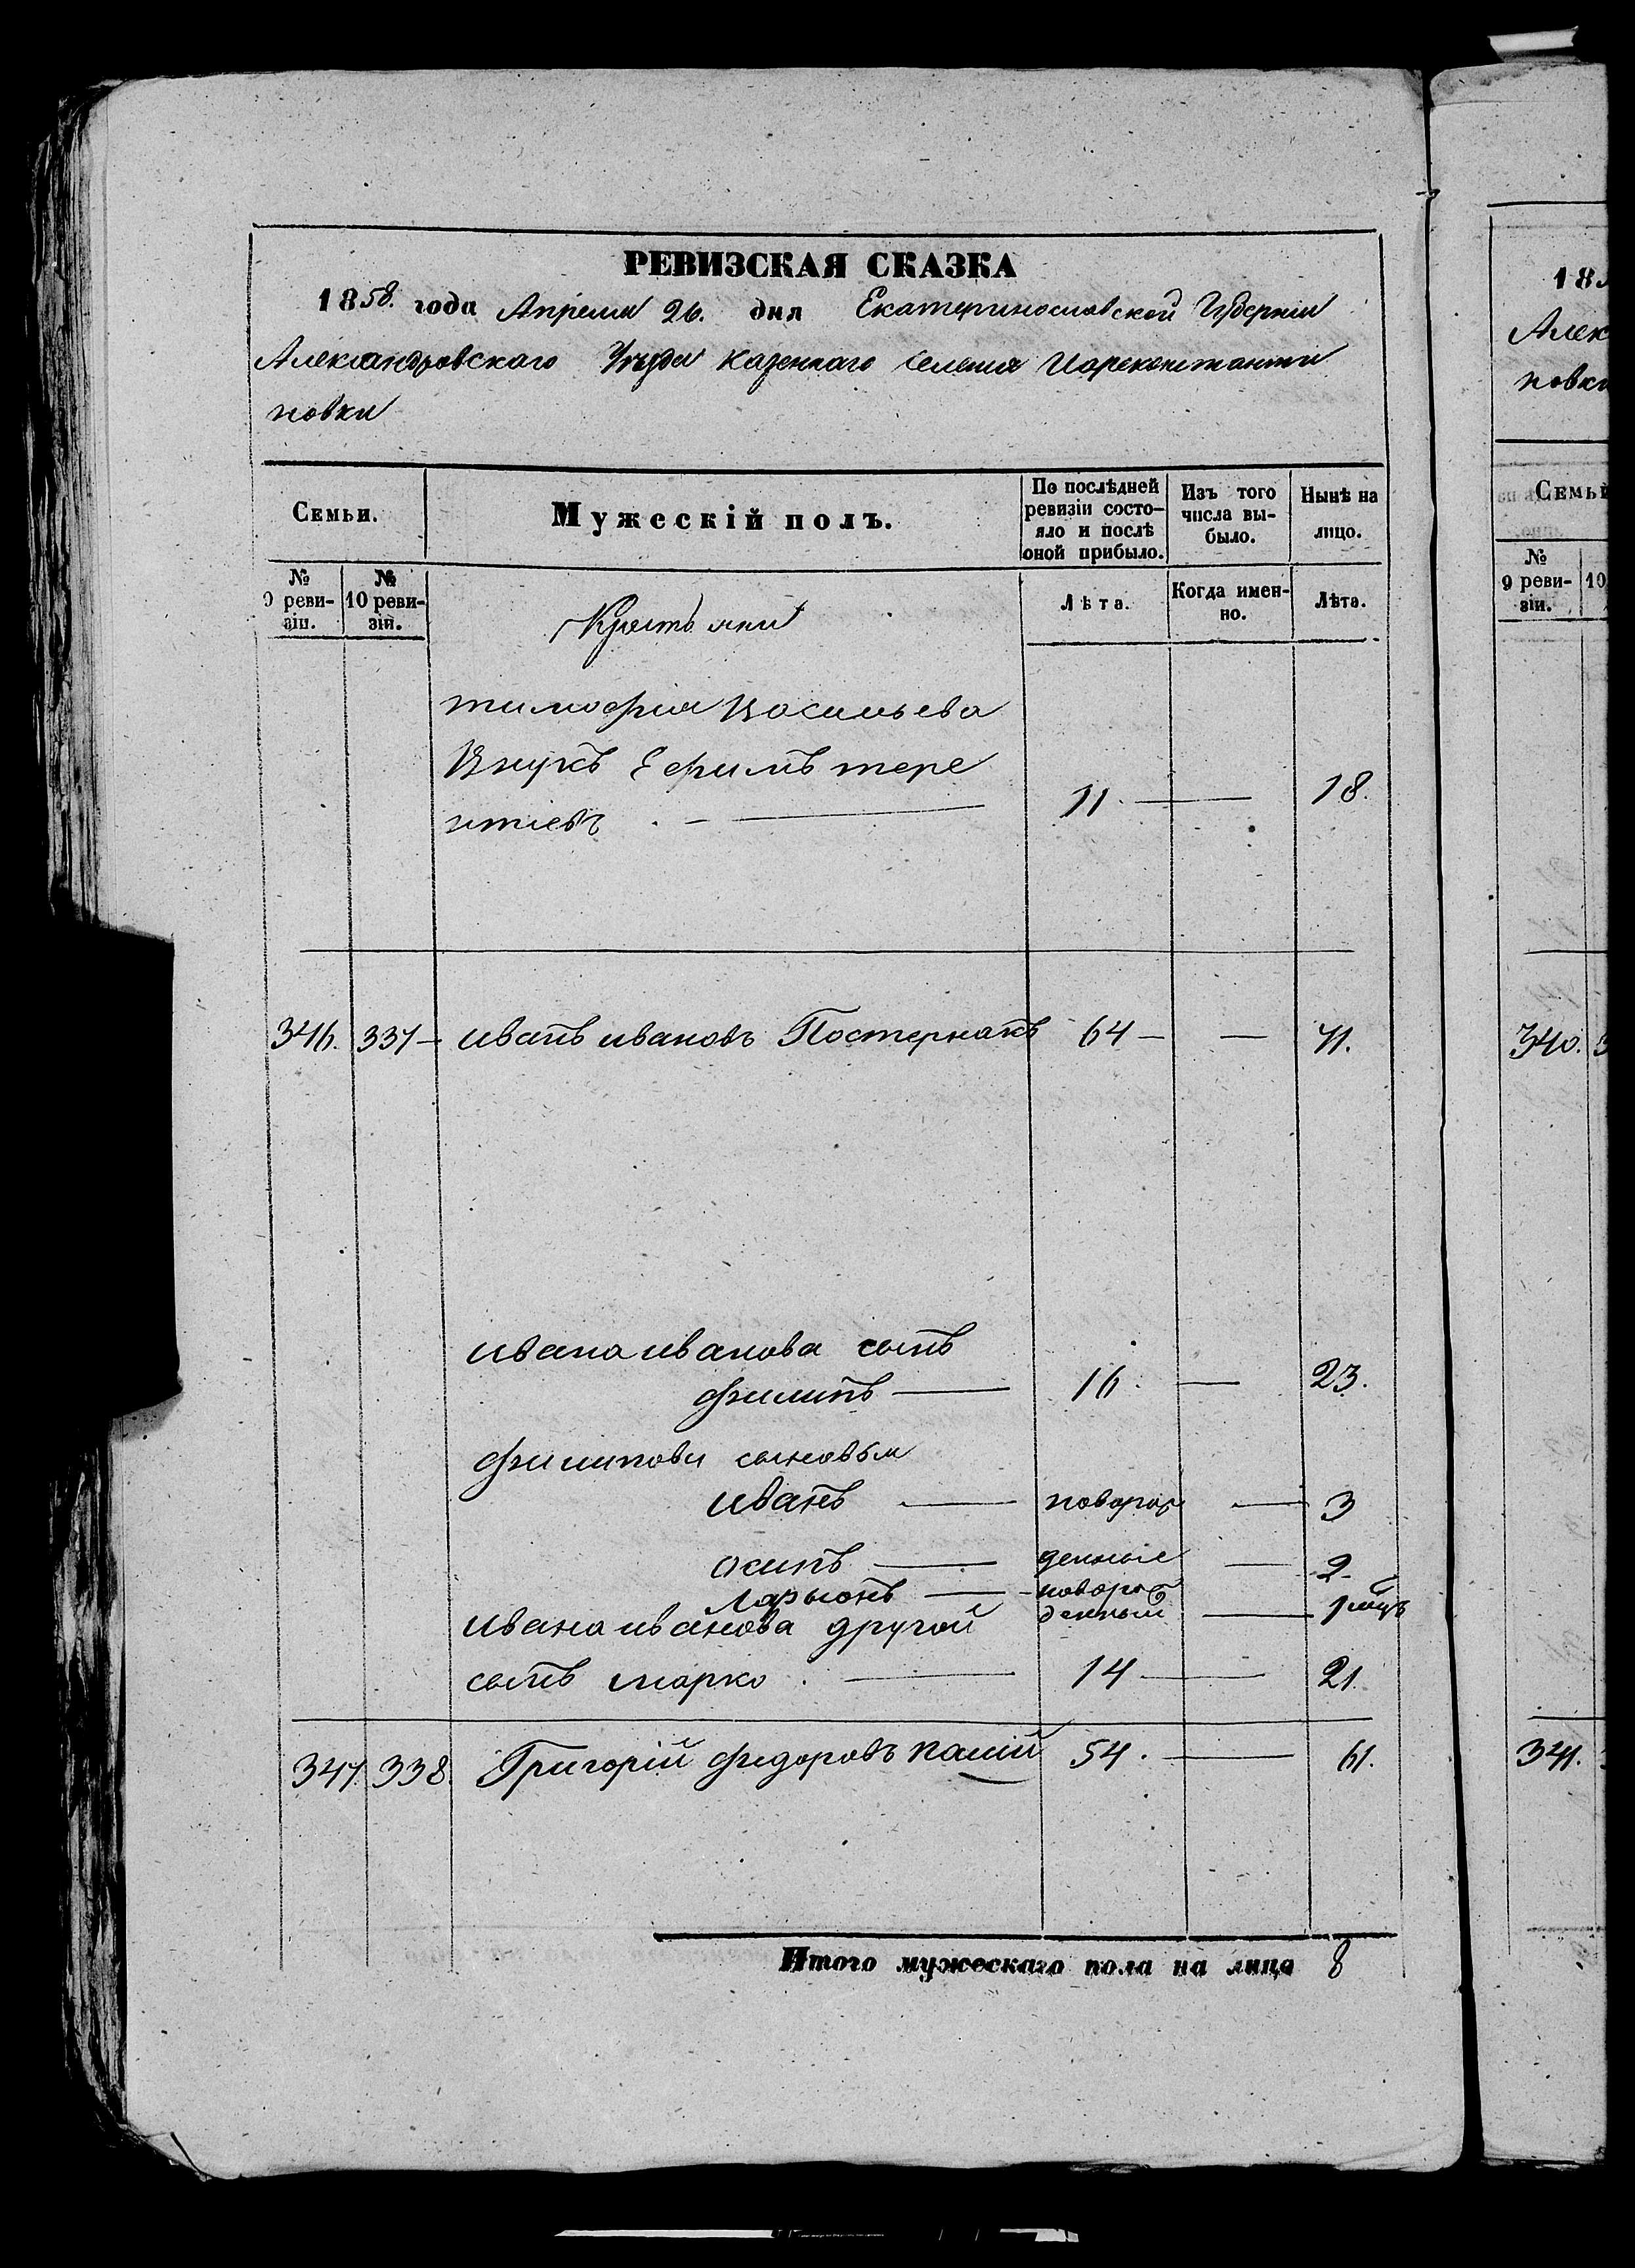 РЕВИЗСКАЯ СКАЗКА
1858. года Апреля 26. дня Екатеринославской Губернии
Александровскаго Уезда казеннаго селения Цареконстанти
новки
Семьи.
Мужескій полъ.
По послѣдней ревизіи состо-
яло и послѣ
оной прибыло.
Изъ того
числа вы-
было.
Нынѣ на
лицо.
№
9 реви-
зіи.
№
10 реви-
зіи.
Крестьяни
Лѣта.
Когда имен-
но.
Лѣта.
тимофия Васильева
Внукъ Ефимъ тере
нтіевъ 11. 18.
346. 337 иванъ ивановъ Постернакъ 64 71.
ивана иванова сынъ
филипъ 16. 23.
филипови сыновья
иванъ новорож 3
осипъ денные 2
Ларыонъ новорож
денный 1 мцъ
ивана иванова другой
сынъ марко 14 21.
347. 338. Григорій федоровъ Палій 54. 61.
Итого мужескаго пола на лицо 8
185
Алек
новки
Семьи
№
9 реви-
зіи.
10
340.
341.